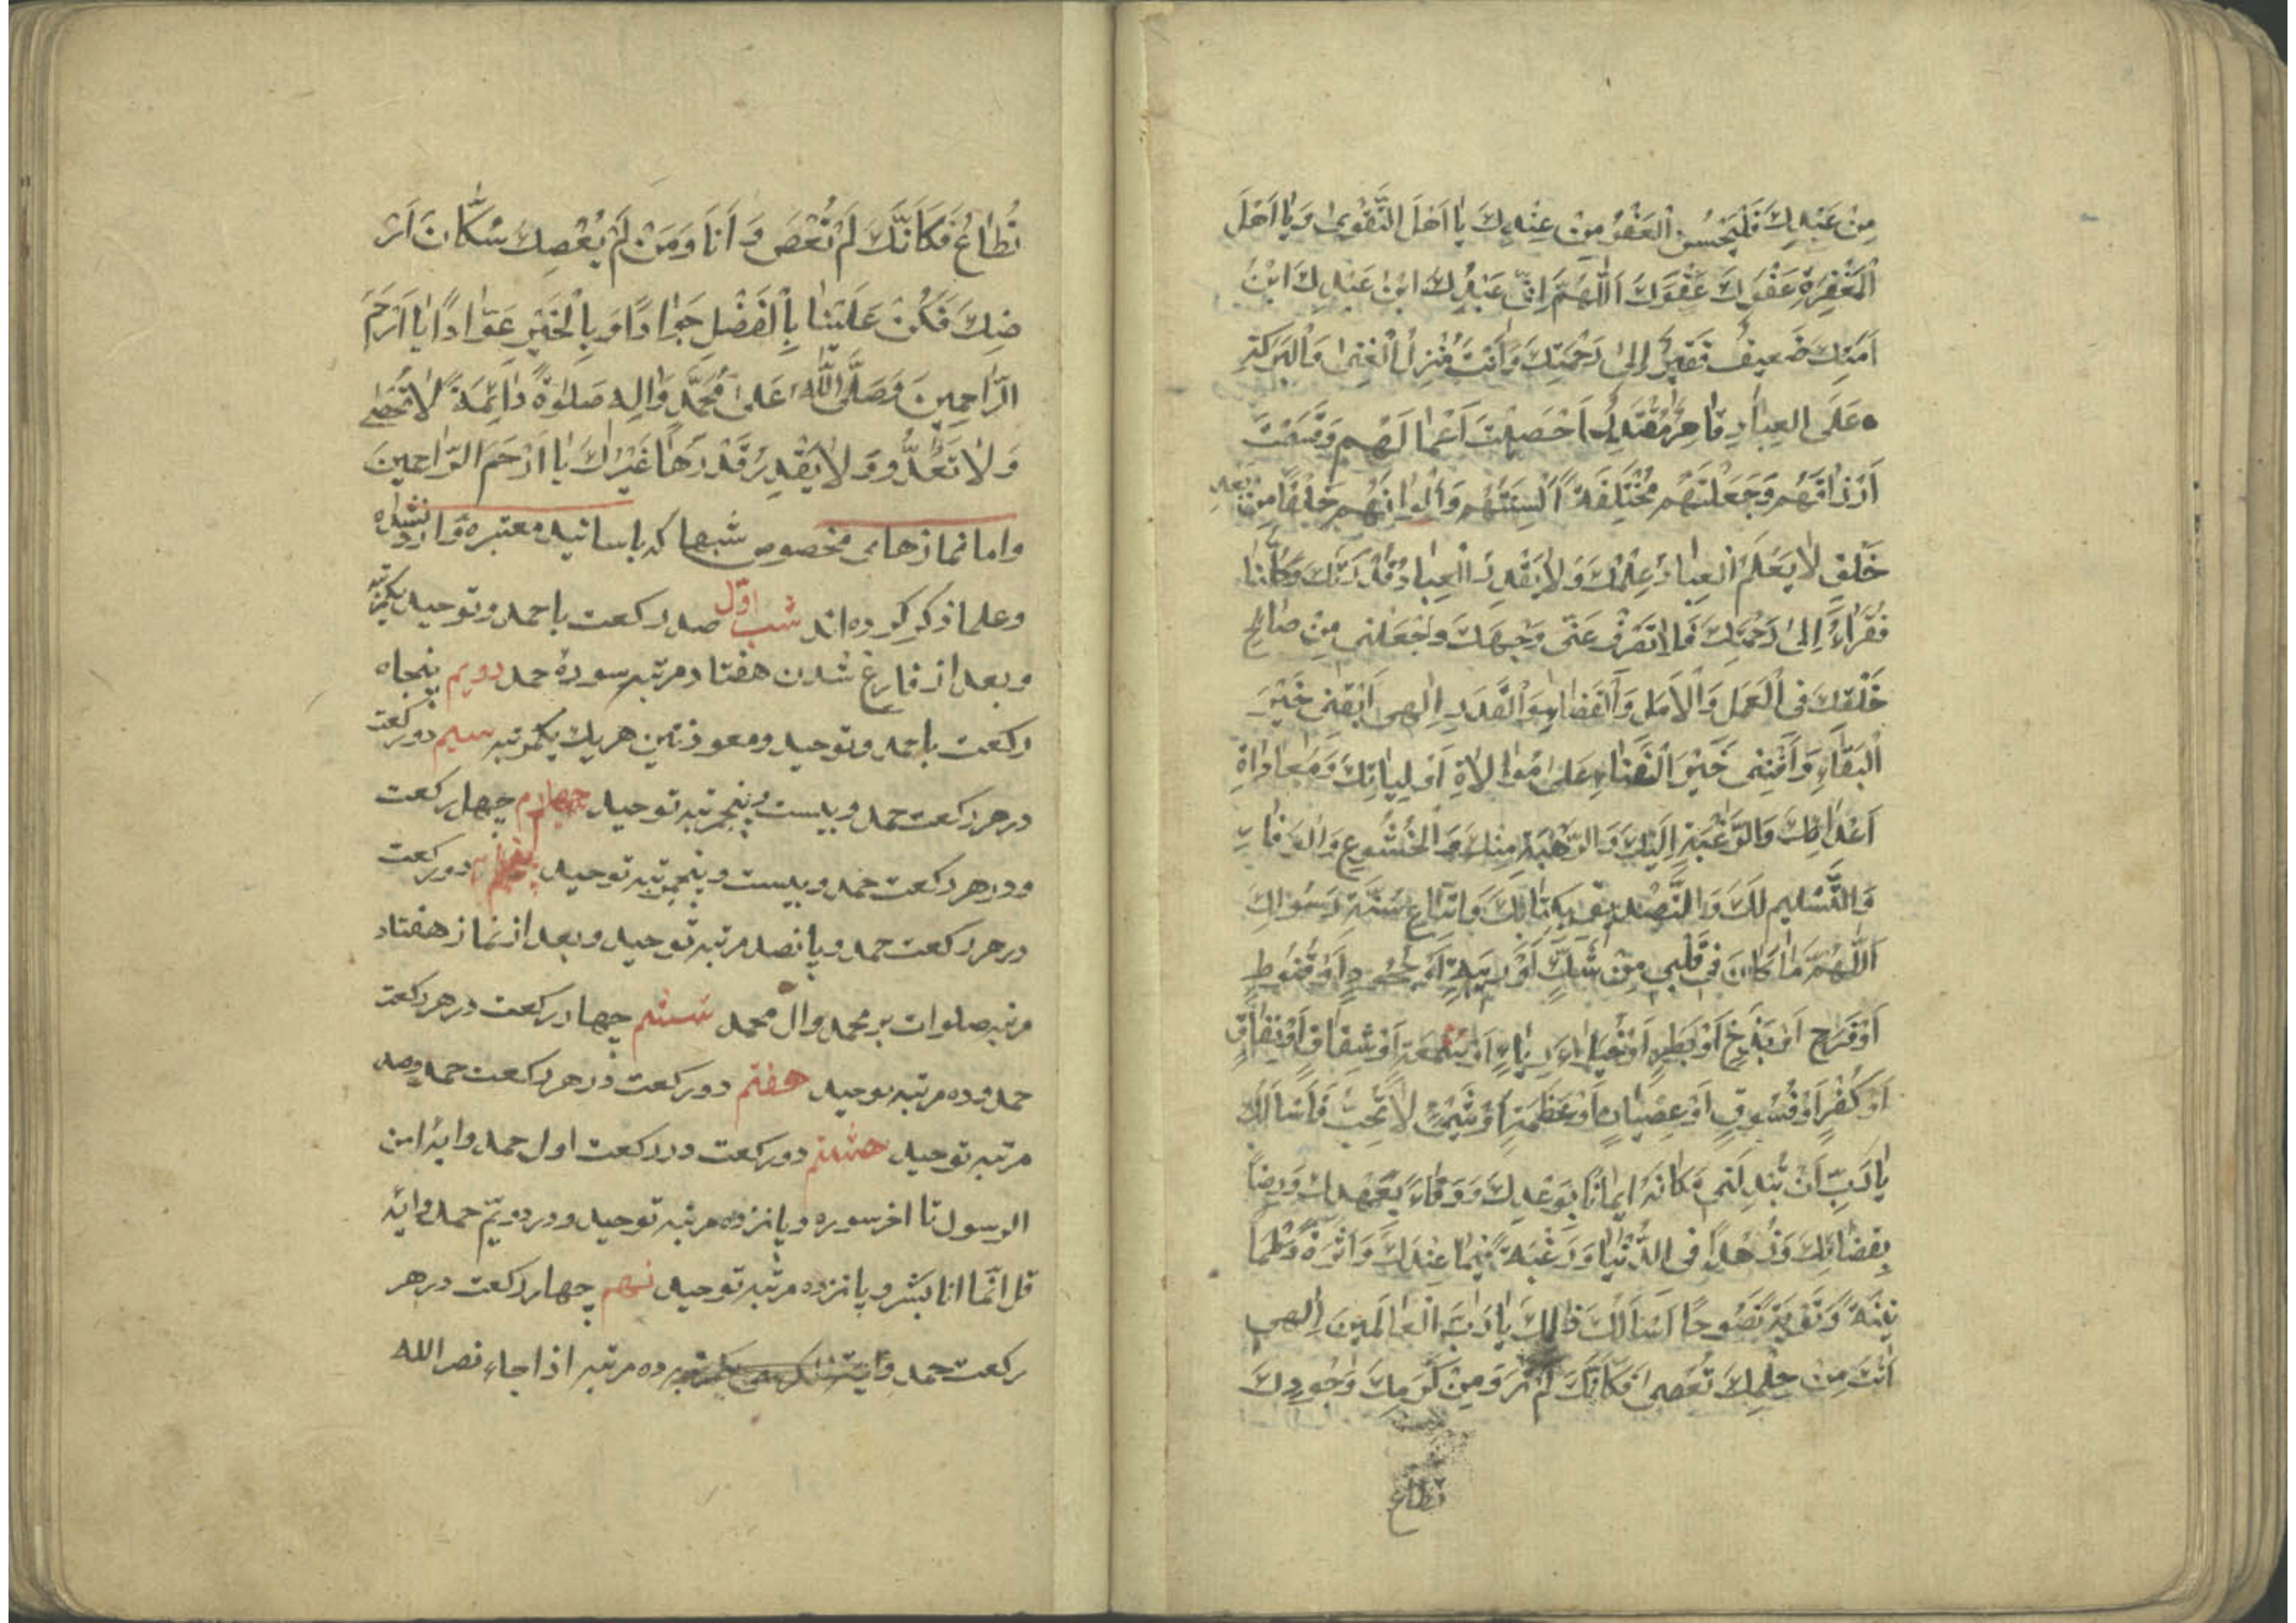 مِنْ عَبْدِكَ فَلْيَحْسُنِ الْعَفْوُ مِنْ عِنْدِكَ يَا اَهْلَ التَّقْوىٰ وَيَا اَهْلَ
الْمَغْفِرَةِ عَفْوَكَ عَفْوَكَ اَللّٰهُمَّ اِنّى عَبْدُكَ ابْنُ عَبْدِكَ ابْنُ
اَمَتِكَ ضَعيفٌ فَقيرٌ اِلىٰ رَحْمَتِكَ وَاَنْتَ مُنْزِلُ الْغِنىٰ وَالْبَرَكَةِ
عَلَى الْعِبٰادِ قٰاهِرٌ مُقْتَدِرٌ اَحْصَيْتَ اَعْمٰالَهُمْ وَقَسَمْتَ
اَرْزٰاقَهُمْ وَجَعَلْتَهُمْ مُخْتَلِفَةً اَلْسِنَتُهُمْ وَاَلْوٰانُهُمْ خَلْقًا مِنْ بَعْدِ
خَلْقٍ لٰا يَعْلَمُ الْعِبٰادُ عِلْمَكَ وَلٰا يَقْدِرُ الْعِبٰادُ قَدْرَكَ وَكُلُّنٰا
فُقَرٰاءُ اِلىٰ رَحْمَتِكَ فَلٰا تَصْرِفْ عَنّى وَجْهَكَ وَاجْعَلْنى مِنْ صٰالِحِ
خَلْقِكَ فِى الْعَمَلِ وَالْاَمَلِ وَالْقَضٰاءِ وَالْقَدَرِ اِلٰهى اَبْقِنى خَيْرَ
الْبَقٰاءِ وَاَفْنِنى خَيْرَ الْفَنٰاءِ عَلىٰ مُوٰالٰاةِ اَوْلِيٰائِكَ وَمُعٰادٰاةِ
اَعْدٰائِكَ وَالرَّغْبَةِ اِلَيْكَ وَالرَّهْبَةِ مِنْكَ وَالْخُشُوعِ وَالْوَفٰاءِ
وَالتَّسْليمِ لَكَ وَالتَّصْديقِ بِكِتٰابِكَ وَاتِّبٰاعِ سُنَّةِ رَسُولِكَ
اَللّٰهُمَّ مٰا كٰانَ فى قَلْبى مِنْ شَكٍّ اَوْ رَيْبَةٍ اَوْ جُحُودٍ اَوْ قُنُوطٍ
اَوْ فَرَحٍ اَوْ بَذَخٍ اَوْ بَطَرٍ اَوْ خُيَلٰاءَ اَوْ رِيٰاءٍ اَوْ سُمْعَةٍ اَوْ شِقٰاقٍ اَوْ نِفٰاقٍ
اَوْ كُفْرٍ اَوْ فُسُوقٍ اَوْ عِصْيٰانٍ اَوْ عَظَمَةٍ اَوْ شَىْءٍ لٰا تُحِبُّ فَاَسْاَلُكَ
يٰا رَبِّ اَنْ تُبْدِلَنى مَكٰانَهُ ايمٰانًا بِوَعْدِكَ وَوَفٰاءً بِعَهْدِكَ وَرِضًا
بِقَضٰائِكَ وَزُهْدًا فِى الدُّنْيٰا وَرَغْبَةً فيمٰا عِنْدَكَ وَاَثَرَةً وَطُمَا
نينَةً وَتَوْبَةً نَصُوحًا اَسْاَلُكَ ذٰلِكَ يٰا رَبَّ الْعٰالَمينَ اِلٰهى
اَنْتَ مِنْ حِلْمِكَ تُعْصىٰ فَكَاَنَّكَ لَمْ تَرَ وَمِنْ كَرَمِكَ وَجُودِكَ
تطاع
تُطٰاعُ فَكَاَنَّكَ لَمْ تُعْصَ وَ اَنَا وَمَنْ لَمْ يَعْصِكَ سُكّٰانُ اَرْ
ضِكَ فَكُنْ عَلَيْنٰا بِالْفَضْلِ جَوٰادًا وَبِالْخَيْرِ عَوّٰادًا يٰا اَرْحَمَ
الرّٰاحِمينَ وَصَلَّى اللّٰهُ عَلىٰ مُحَمَّدٍ وَاٰلِهِ صَلٰوةً دٰائِمَةً لٰا تُحْصىٰ
وَلٰا تُعَدُّ وَ وَلٰا يَقْدِرُ قَدْرَهٰا غَيْرُكَ يٰا اَرْحَمَ الرّٰاحِمينَ
واما نمازهاى مخصوص شبها كه باسانيد معتبره وارد شده
وعلما ذكر كرده اند شب اوّل صد ركعت با حمد وتوحيد يكمرتبه
وبعد از فارغ شدن هفتاد مرتبه سورهٔ حمد دويم پنجاه
ركعت با حمد وتوحيد ومعوذتين هريك يكمرتبه سيم دوركعت
در هر ركعت حمد وبيست وپنجمرتبه توحيد چهارم چهل ركعت
ودر هر ركعت حمد وبيست وپنجمرتبه توحيد پنجم دوركعت
در هر ركعت حمد وپانصد مرتبه توحيد وبعد از نماز هفتاد
مرتبه صلوات بر محمد وال محمد ششم چهار ركعت در هر ركعت
حمد وده مرتبه توحيد هفتم دوركعت در هر ركعت حمد وصد
مرتبه توحيد هشتم دوركعت در ركعت اول حمد وايهٔ امن
الرسول تا اخر سوره وپانزده مرتبه توحيد ودر دويّم حمد وايه
قل انّما انا بشر وپانزده مرتبه توحيد نهم چهار ركعت در هر
ركعت حمد وايت الكرسى يكمرتبه ده مرتبه اذا جاء نصر الله